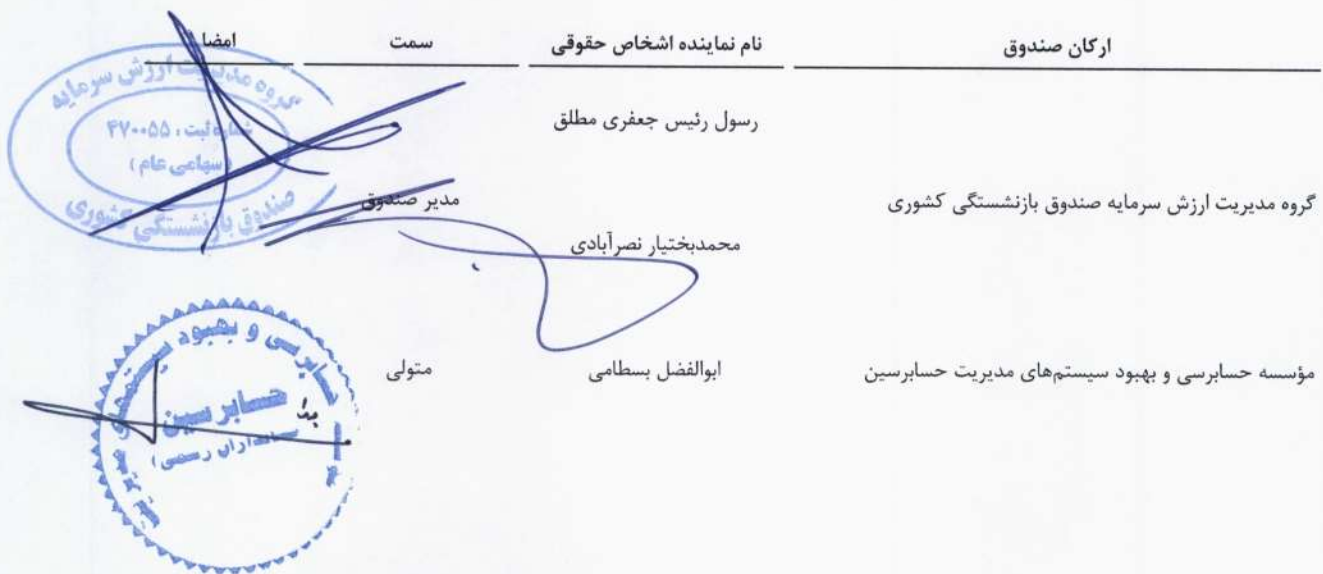 ارکان صندوق نام نماینده اشخاص حقوقی سمت امضا
رسول رئیس جعفری مطلق
گروه مدیریت ارزش سرمایه صندوق بازنشستگی کشوری مدیر صندوق
محمدبختیار نصرآبادی
مؤسسه حسابرسی و بهبود سیستم‌های مدیریت حسابرسین ابوالفضل بسطامی متولی
گروه مدیریت ارزش سرمایه
شماره ثبت : ۴۷۰۰۵۵
(سهامی عام)
صندوق بازنشستگی کشوری
حسابرسی و بهبود سیستمهای مدیریت
حسابرسین
رسمی)